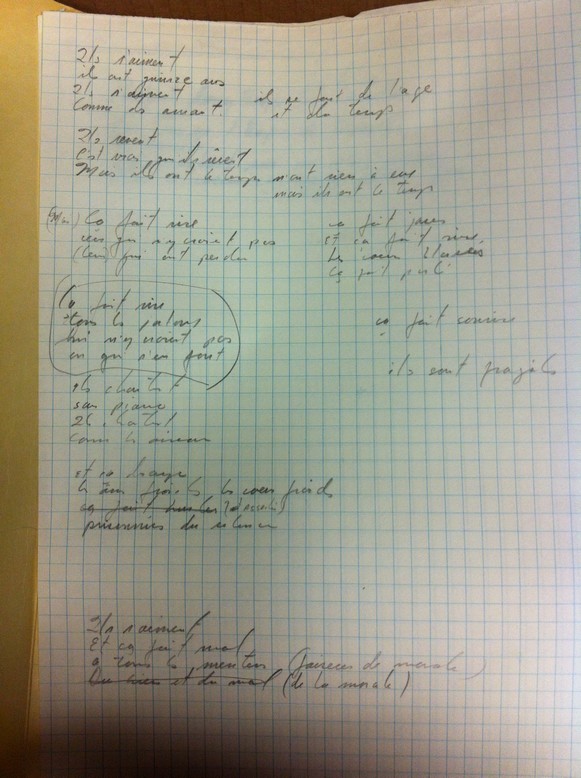 Ils s'aiment
ils ont quinze ans
Ils s'aiment
Comme des amants
ils ne font de l'age
et du temps
Ils rêvent
C'est vrai qu'ils rêvent
Mais ils ont le temps n'ont rien à eux
mais ils ont le temps
Ça fait rire
ceux qui n'y croient pas
(Ceux) qui ont perdu
ça fait
Et ça fait rire
les coeurs blessés
ça fait
Ça fait rire
tous les jaloux
qui n'y croient pas
ou qui s'en font
ça fait sourire
ils sont fragiles
ils chantent
sans piano
Ils chantent
comme les oiseaux
Et ça dérange
les âmes les coeurs froids
ça fait
prisonniers du silence
Ils s'aiment
Et ça fait mal
à tous les menteurs (faiseurs de morale)
et du mal (de la morale)